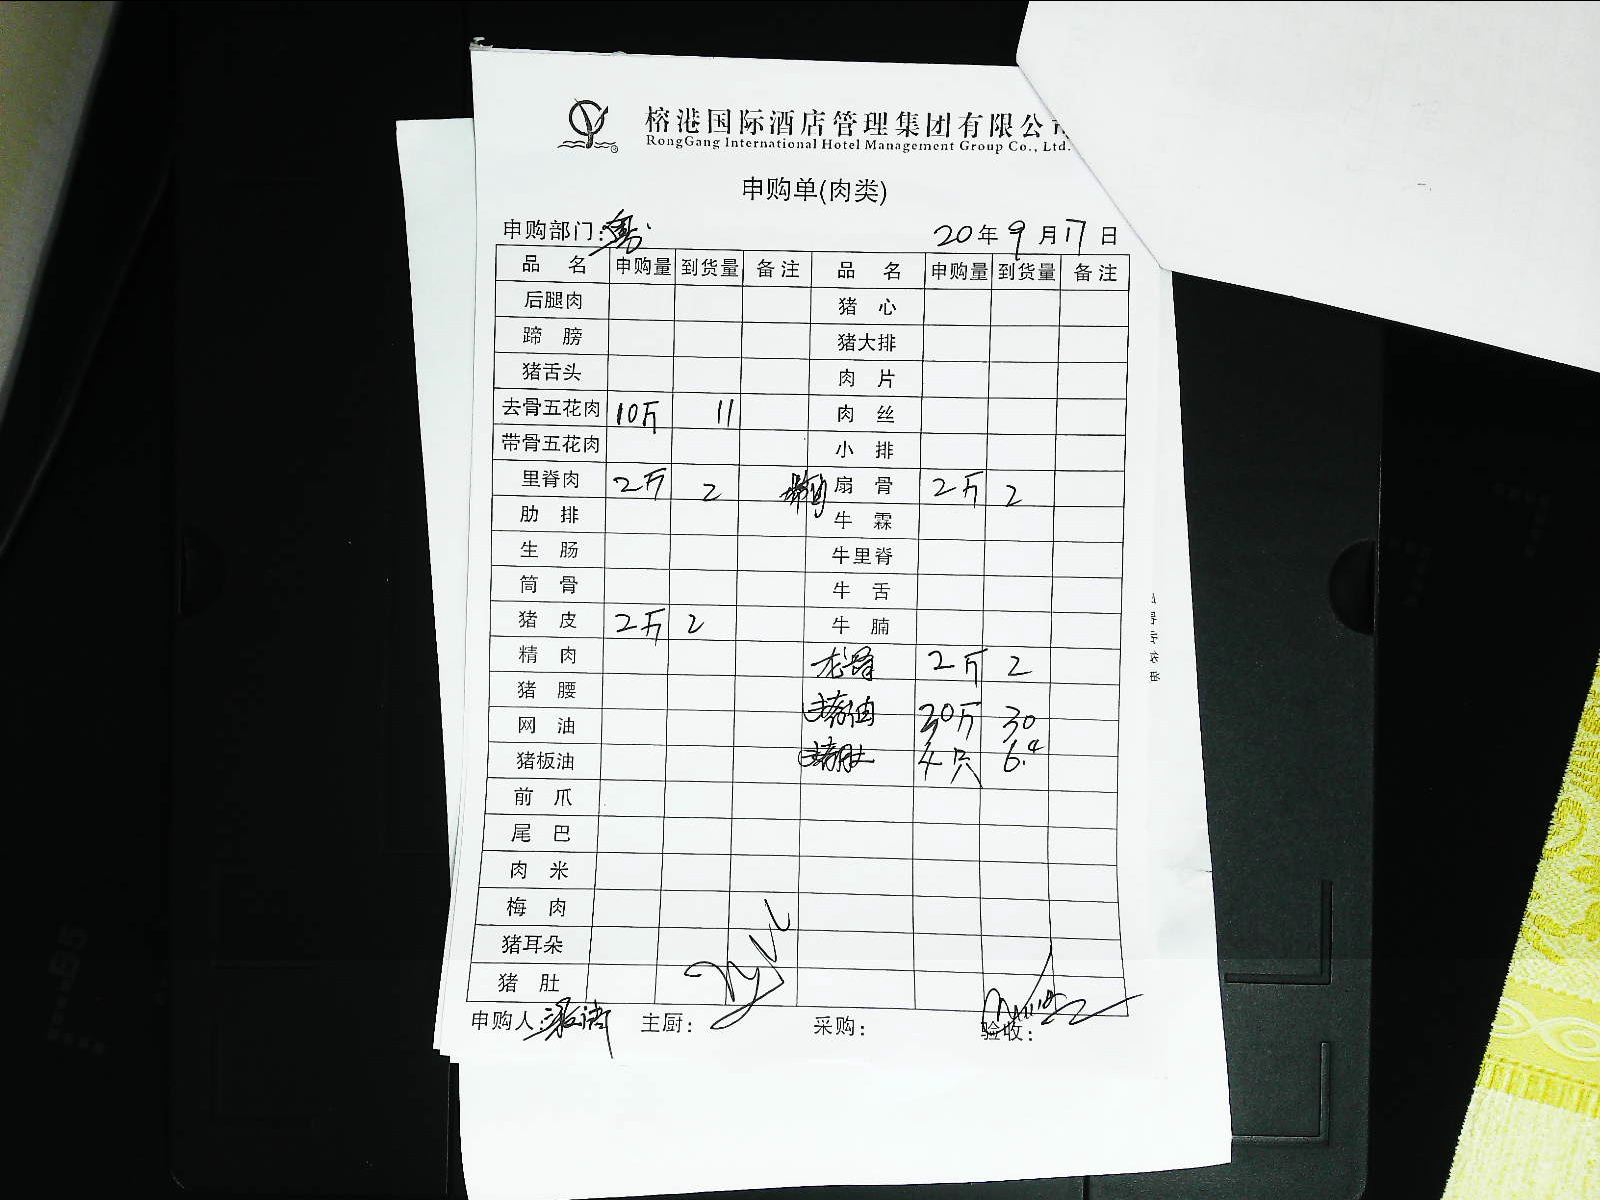 榕港国际酒店管理集团有限公
RongGang International Hotel Management Group Co., Ltd.
申购单(肉类)
申购部门: 20年9月17日
品名 申购量 到货量 备注 品名 申购量 到货量 备注
后腿肉 猪心
蹄膀 猪大排
猪舌头 肉片
去骨五花肉 10斤 11 肉丝
带骨五花肉 小排
里脊肉 2斤 2 扇骨 2斤 2
肋排 牛霖
生肠 牛里脊
筒骨 牛舌
猪皮 2斤 2 牛腩
精肉 龙骨 2斤 2
猪腰 猪油 30斤 30
网油 猪肚 4只 6.4
猪板油
前爪
尾巴
肉米
梅肉
猪耳朵
猪肚
申购人: 主厨: 采购: 验收: